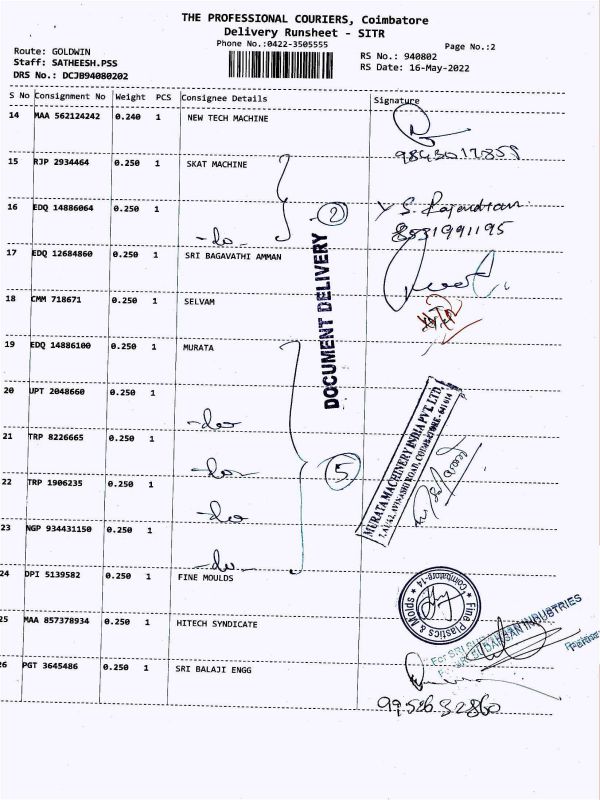 THE PROFESSIONAL COURIERS, Coimbatore
Delivery Runsheet - SITR
Phone No.:0422-3505555
Page No.:2
Route: GOLDWIN
Staff: SATHEESH.PSS
DRS No.: DCJB94080202
RS No.: 940802
RS Date: 16-May-2022
S No Consignment No Weight PCS Consignee Details Signature
14 MAA 562124242 0.240 1 NEW TECH MACHINE
15 RJP 2934464 0.250 1 SKAT MACHINE
16 EDQ 14886064 0.250 1 -do-
2
S. Rajendran
8531991195
17 EDQ 12684860 0.250 1 SRI BAGAVATHI AMMAN
18 CMM 718671 0.250 1 SELVAM
DOCUMENT DELIVERY
19 EDQ 14886100 0.250 1 MURATA
20 UPT 2048660 0.250 1 -do-
21 TRP 8226665 0.250 1 -do-
22 TRP 1906235 0.250 1 -do-
23 NGP 934431150 0.250 1 -do-
5
MURATA MACHINERY INDIA PVT. LTD.
AVINASHI ROAD, COIMBATORE - 641 014
24 DPI 5139582 0.250 1 FINE MOULDS
Fine Plastics & Moulds
Coimbatore-14
25 MAA 857378934 0.250 1 HITECH SYNDICATE
26 PGT 3645486 0.250 1 SRI BALAJI ENGG
9952632860